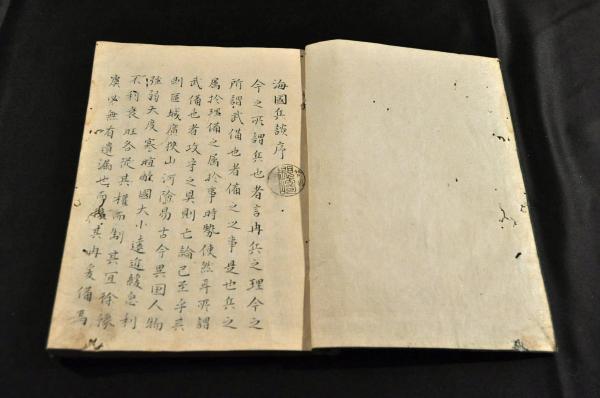 海國兵談序
今之所謂兵也者言冉兵之理今之
所謂武備也者備之之事是也兵之
属於理備之属於事時勢使然尋所謂
武備也者攻守之具則亡論已至乎其
則區城廣狹山河險易古今異囯人物
強弱天度寒暄敵國大小遠近緩急利
不利衰旺各從其權而制其宜徐徐
必無有遺漏也而其冉爰備焉